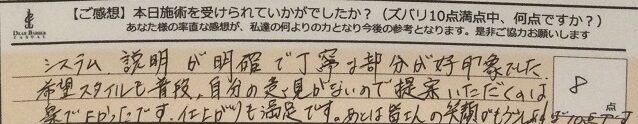 DEAR BARBER
CASUAL
【ご感想】本日施術を受けられていかがでしたか？（ズバリ10点満点中、何点ですか？）
あなた様の率直な感想が、私達の何よりの力となり今後の参考となります。是非ご協力お願いします
システム、説明が明確で丁寧な部分が好印象でした
希望スタイルも普段、自分の意見がないので提案いただくのは
楽で良かったです。仕上がりも満足です。あとは皆さんの笑顔が
8
点